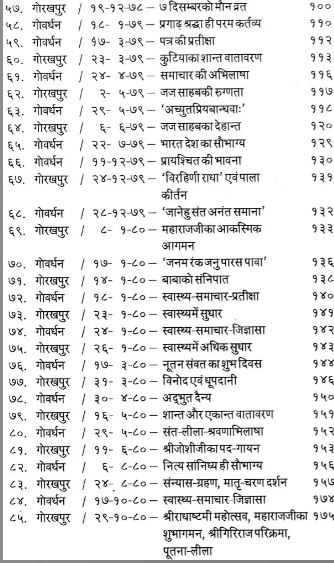 ५७. गोरखपुर / १९-१२-७८ – ७ दिसम्बरको मौन व्रत १००
५८. गोवर्धन / १८- १-७९ – प्रगाढ़ श्रद्धा ही परम कर्तव्य ११०
५९. गोवर्धन / १७- ३-७९ – पत्र की प्रतीक्षा ११२
६०. गोरखपुर / २३- ३-७९ – कुटियाका शान्त वातावरण ११३
६१. गोवर्धन / २४- ४-७९ – समाचार की अभिलाषा ११६
६२. गोवर्धन / २- ५-७९ – जज साहबकी रुग्णता ११७
६३. गोवर्धन / २९- ५-७९ – 'अच्युतप्रियबान्धवाः' ११८
६४. गोवर्धन / ६- ६-७९ – जज साहबका देहान्त १२०
६५. गोवर्धन / २२- ७-७९ – भारत देश का सौभाग्य १२९
६६. गोवर्धन / ११-१२-७९ – प्रायश्चित की भावना १३०
६७. गोरखपुर / २४-१२-७९ – 'विरहिणी राधा' एवं पाला १३१
कीर्तन
६८. गोवर्धन / २८-१२-७९ – 'जानेहु संत अनंत समाना' १३२
६९. गोरखपुर / ८- १-८० – महाराजजीका आकस्मिक १३३
आगमन
७०. गोवर्धन / १७- १-८० – 'जनम रंक जनु पारस पावा' १३६
७१. गोरखपुर / १४- १-८० – बाबाको संनिपात १३८
७२. गोवर्धन / १८- १-८० – स्वास्थ्य-समाचार-प्रतीक्षा १४०
७३. गोरखपुर / २३- १-८० – स्वास्थ्यमें सुधार १४१
७४. गोवर्धन / २४- १-८० – स्वास्थ्य-समाचार-जिज्ञासा १४२
७५. गोरखपुर / २६- १-८० – स्वास्थ्यमें अधिक सुधार १४३
७६. गोवर्धन / १७- ३-८० – नूतन संवत का शुभ दिवस १४४
७७. गोरखपुर / ३१- ३-८० – विनोद एवं धूपदानी १४६
७८. गोवर्धन / ३०- ४-८० – अद्भुत दैन्य १५०
७९. गोरखपुर / १६- ५-८० – शान्त और एकान्त वातावरण १५१
८०. गोवर्धन / २९- ५-८० – संत-लीला-श्रवणाभिलाषा १५२
८१. गोरखपुर / ११- ६-८० – श्रीजोशीजीका पद-गायन १५३
८२. गोवर्धन / ६- ८-८० – नित्य सांनिध्य ही सौभाग्य १५६
८३. गोरखपुर / २४- ८-८० – संन्यास-ग्रहण, मातृ-चरण दर्शन १५७
८४. गोवर्धन / १७-१०-८० – स्वास्थ्य-समाचार-जिज्ञासा १७४
८५. गोरखपुर / २९-१०-८० – श्रीराधाष्टमी महोत्सव, महाराजजीका १७५
शुभागमन, श्रीगिरिराज परिक्रमा,
पूतना-लीला